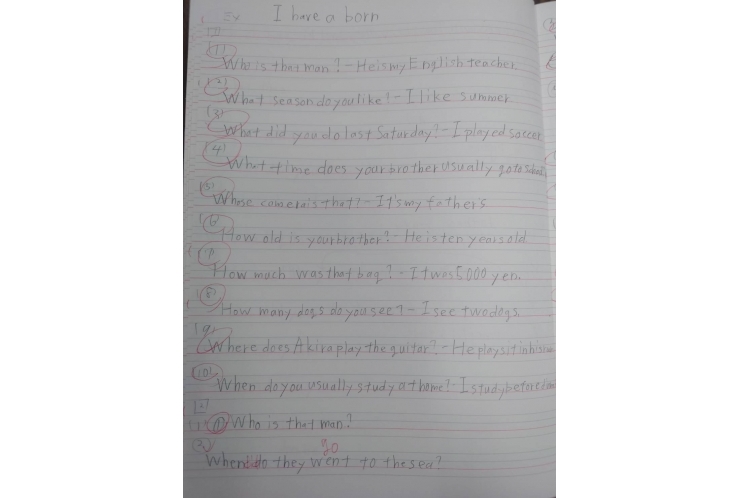 Ex I have a born
[1]
(1)
Who is that man? - He is my English teacher.
(2)
What season do you like? - I like summer
(3)
What did you do last Saturday? - I played soccer
(4)
What time does your brother usually go to
(5)
Whose camera is that? - It's my father's
(6)
How old is your brother? - He is ten years old
(7)
How much was that bag? - It was 5000 yen.
(8)
How many dogs do you see? - I see two dogs.
(9)
Where does Akira play the guitar? - He plays it in his
(10)
When do you usually study at home? - I study before
[2]
(1) Who is that man?
(2) go
When do they went to the sea?